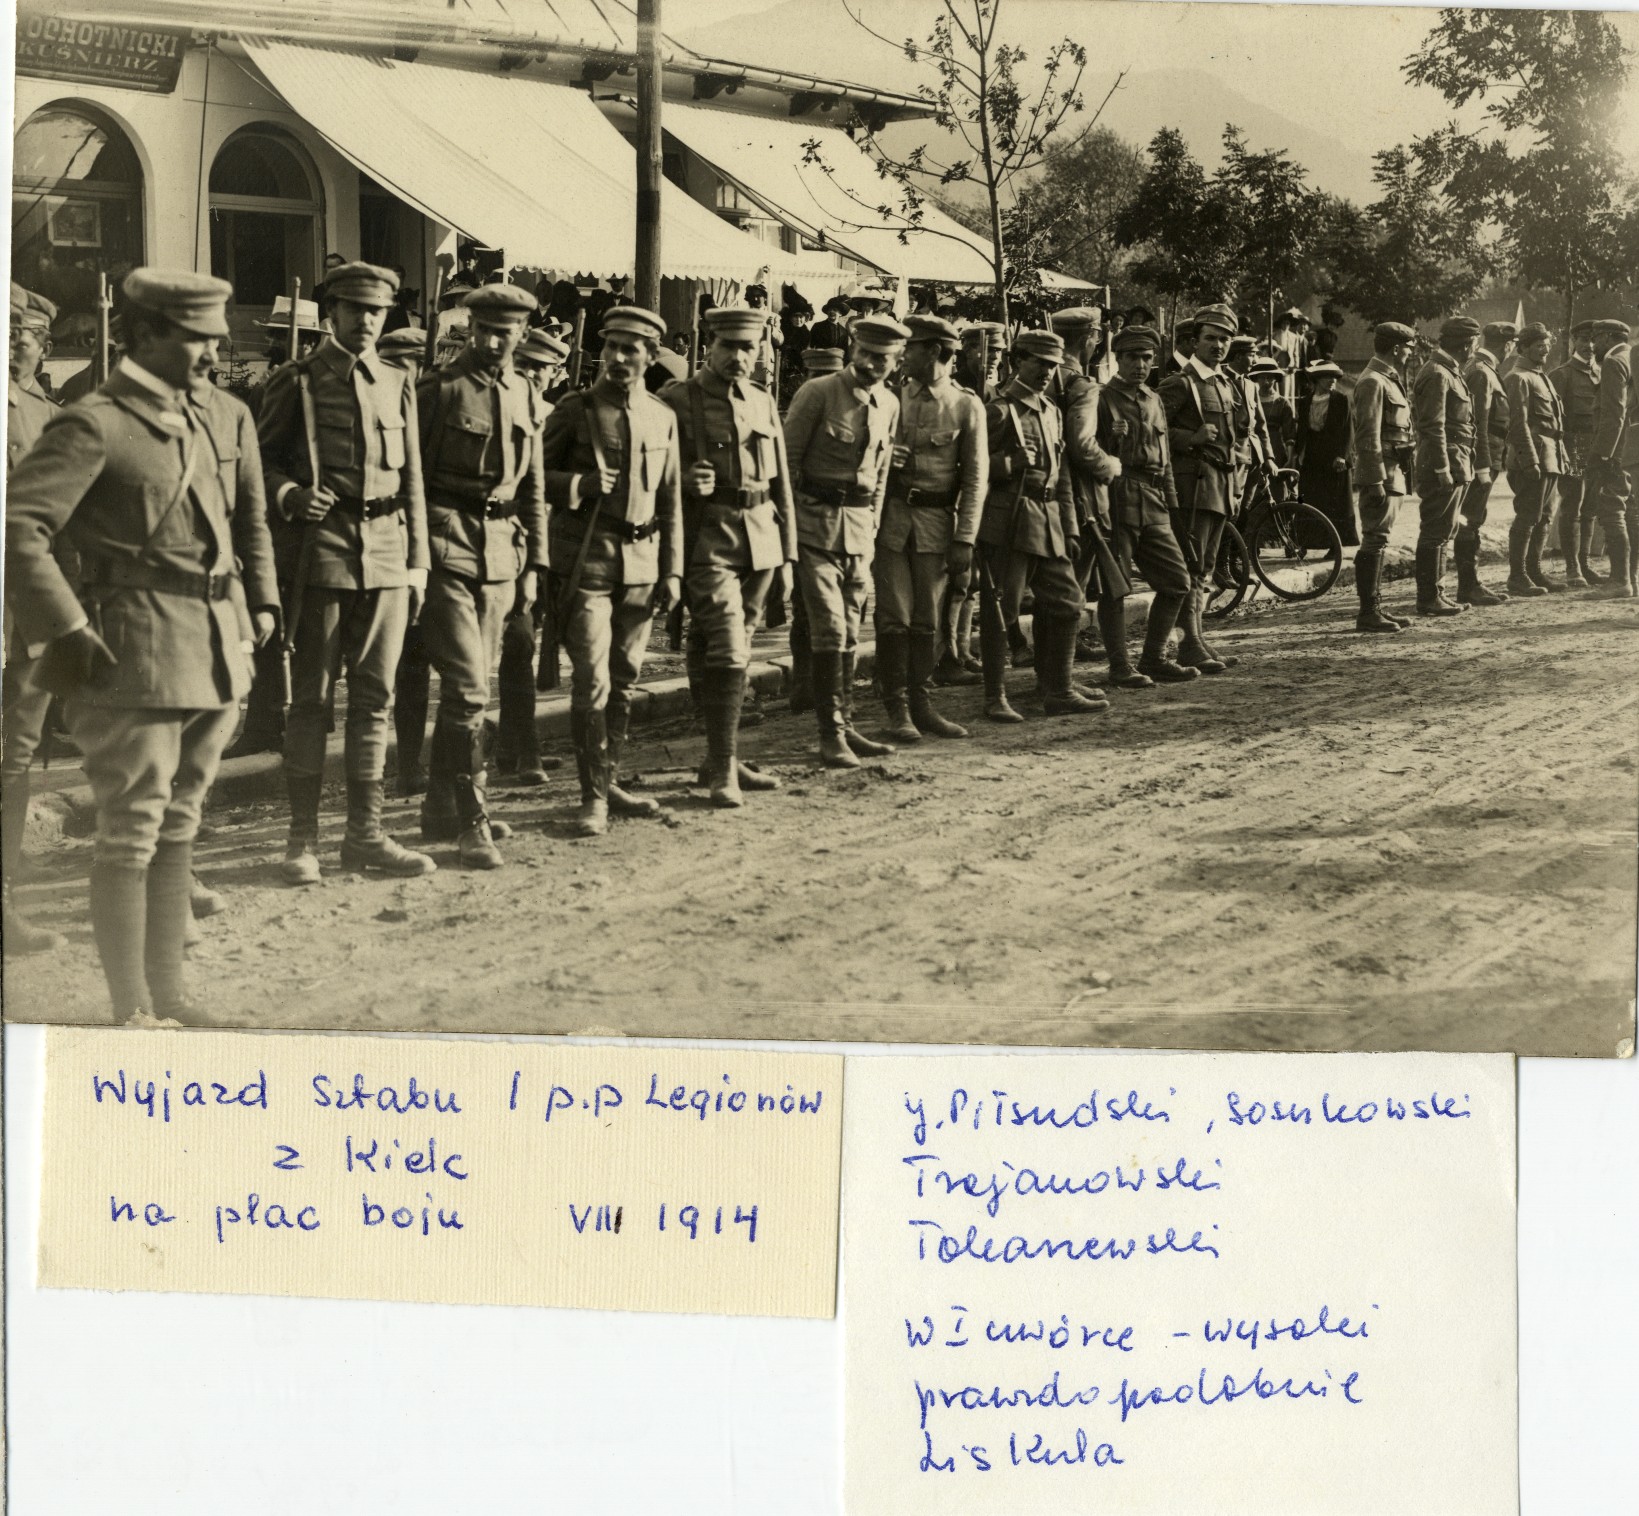 OCHOTNICKI
KUŚNIERZ
Wyjazd Sztabu I p.p Legionów
z Kielc
na plac boju VIII 1914
J. Piłsudski, Sosnkowski
Trojanowski
Tokarzewski
w I czwórce - wysoki
prawdopodobnie
Lis Kula